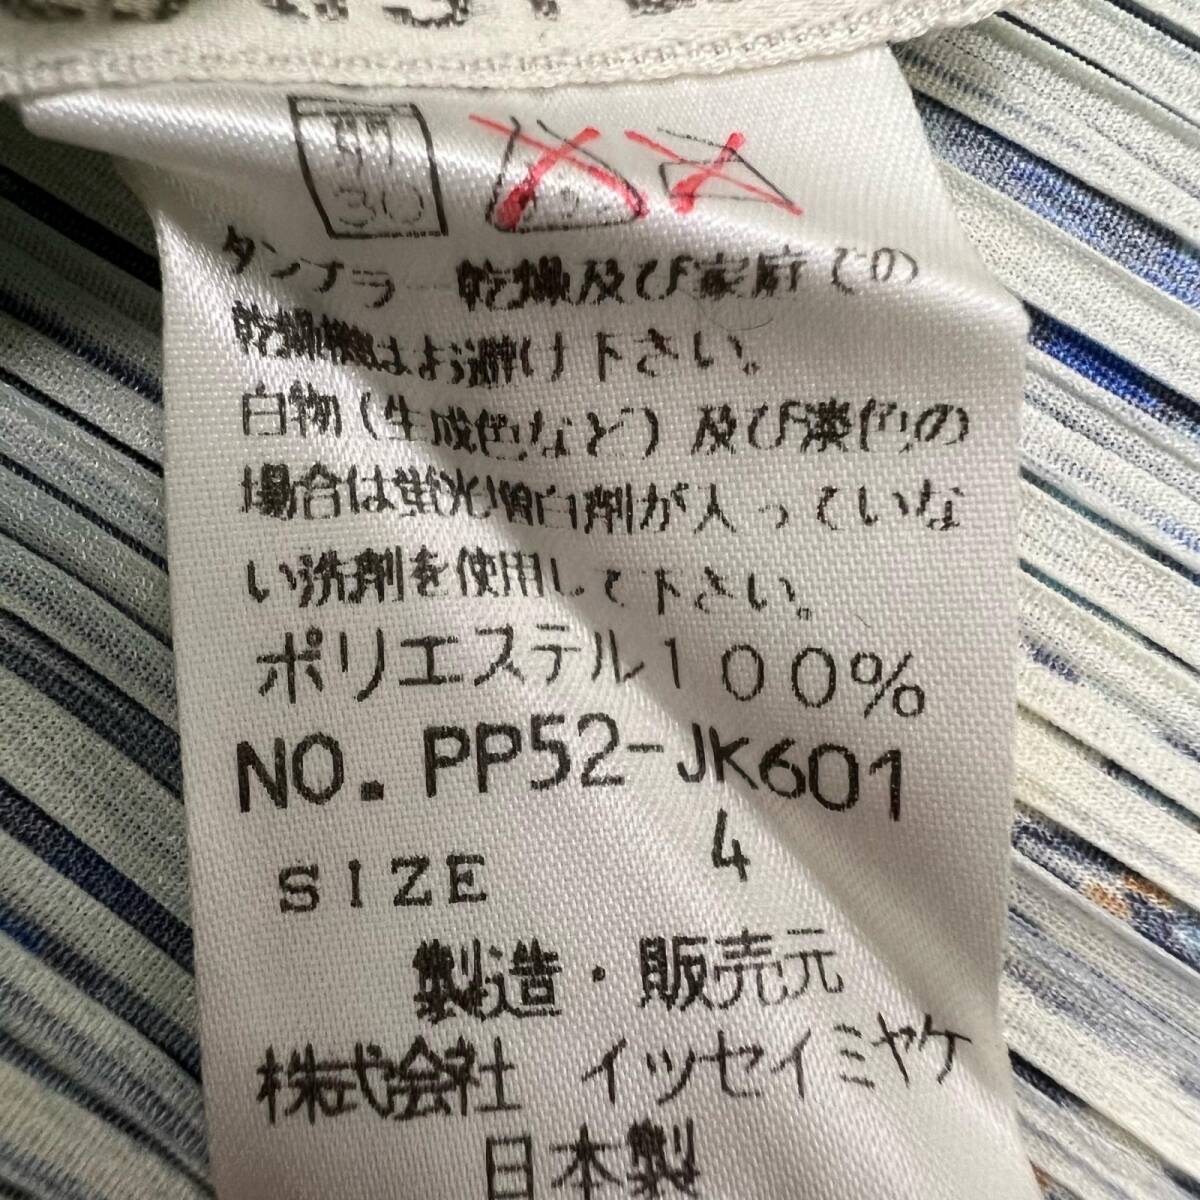 弱
30
タンブラー乾燥及び家庭での
乾燥機はお避け下さい。
白物(生成色など)及び淡色の
場合は蛍光増白剤が入っていな
い洗剤を使用して下さい。
ポリエステル100%
NO. PP52-JK601
SIZE 4
製造・販売元
株式会社 イッセイミヤケ
日本製